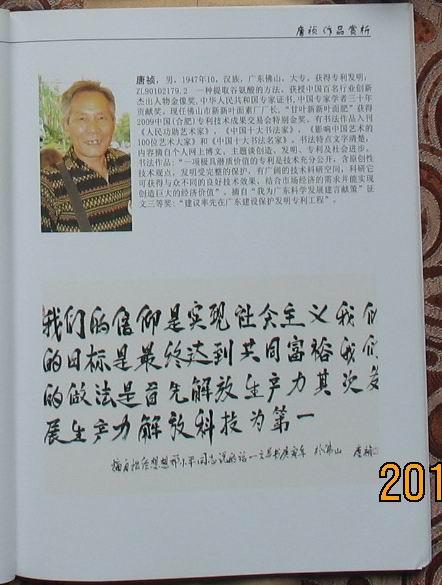 唐祯作品赏析
唐祯，男，1947年10，汉族，广东佛山，大专。获得专利发明：
ZL90102179.2 一种提取谷氨酸的方法。获授中国百名行业创新
杰出人物金像奖，中华人民共和国专家证书，中国专家学者三十年
贡献奖。现任佛山市新新叶面素厂厂长，“甘叶新新叶面肥”获得
2009中国(合肥)专利技术成果交易会特别金奖。有书法作品入刊
《人民功勋艺术家》，《中国十大书法家》，《影响中国艺术的
100位艺术大家》和《中国十大书法名家》。书法特点文字清楚，
内容摘自个人网上博文，主题谈创造、发明、专利及社会进步。
书法作品：“一项极具潜质价值的专利是技术充分公开，含原创性
技术观点，发明受完整的保护，有广阔的技术科研空间，科研它
可获得与众不同的良好技术效果，结合市场经济的需求并能实现
创造巨大的经济价值”。摘自“我为广东科学发展建言献策”征
文三等奖：“建议率先在广东建设保护发明专利工程”。
我们的信仰是实现社会主义我们
的目标是最终达到共同富裕我们
的做法是首先解放生产力其次发
展生产力解放科技为第一
唐祯
201